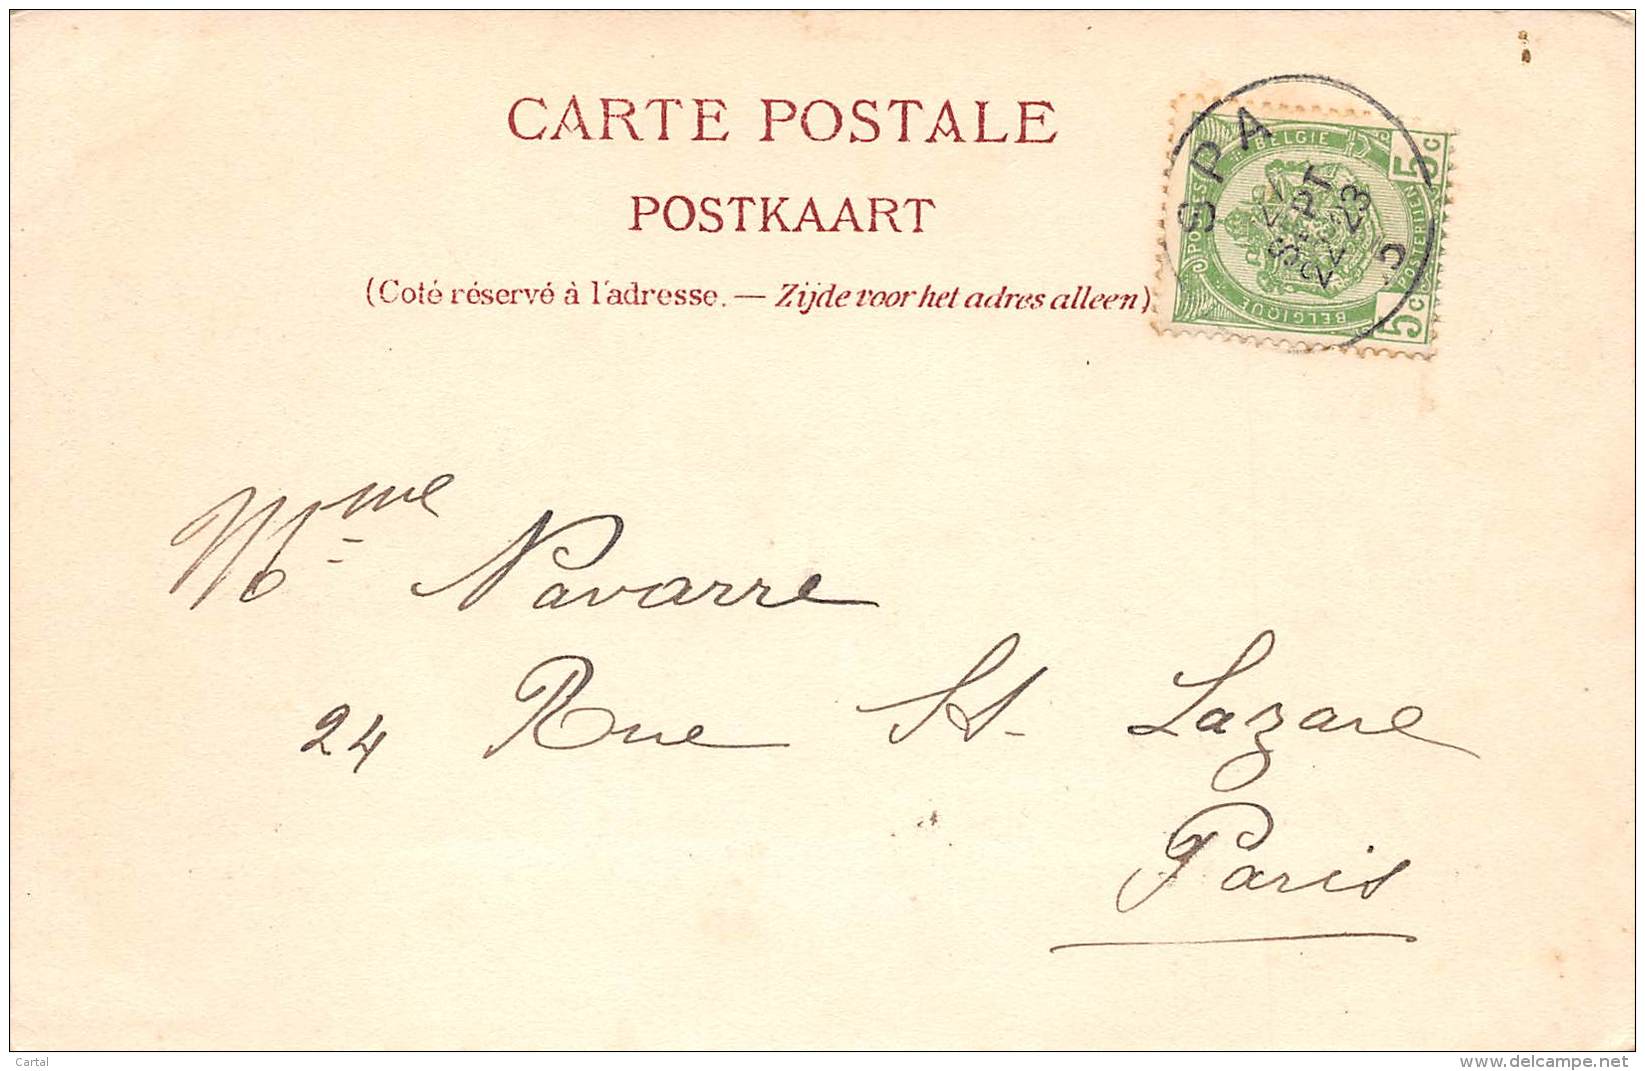 CARTE POSTALE
POSTKAART
(Coté réservé à l'adresse. — Zijde voor het adres alleen)
SPA
SEPT
23
5
POSTES BELGIE POSTERIJEN BELGIQUE
5 C
5 C
Mme Navarre
24 Rue St. Lazare
Paris
Cartal
www.delcampe.net